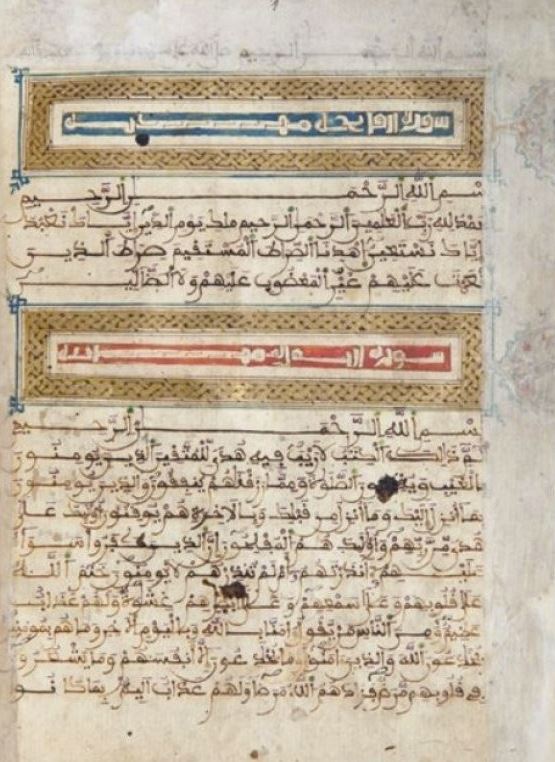 بسم الله الرحمن الرحيم
سورة
بسم الله الرحمن الرحيم
الحمد لله رب العلمين الرحمن الرحيم ملك يوم الدين اياك نعبد
واياك نستعين اهدنا الصراط المستقيم صراط الذين
انعمت عليهم غير المغضوب عليهم ولا الضالين
سورة
بسم الله الرحمن الرحيم
الم ذلك الكتب لا ريب فيه هدى للمتقين الذين يومنون
بالغيب ويقيمون الصلوة ومما رزقنهم ينفقون والذين يومنون
بما انزل اليك وما انزل من قبلك وبالاخرة هم يوقنون اولئك على
هدى من ربهم واولئك هم المفلحون ان الذين كفروا سواء
عليهم ءانذرتهم ام لم تنذرهم لا يومنون ختم الله
على قلوبهم وعلى سمعهم وعلى ابصرهم غشوة ولهم عذاب
عظيم ومن الناس من يقول امنا بالله وباليوم الاخر وما هم بمومنين
يخدعون الله والذين امنوا وما يخدعون الا انفسهم وما يشعرون
في قلوبهم مرض فزادهم الله مرضا ولهم عذاب اليم بما كانوا